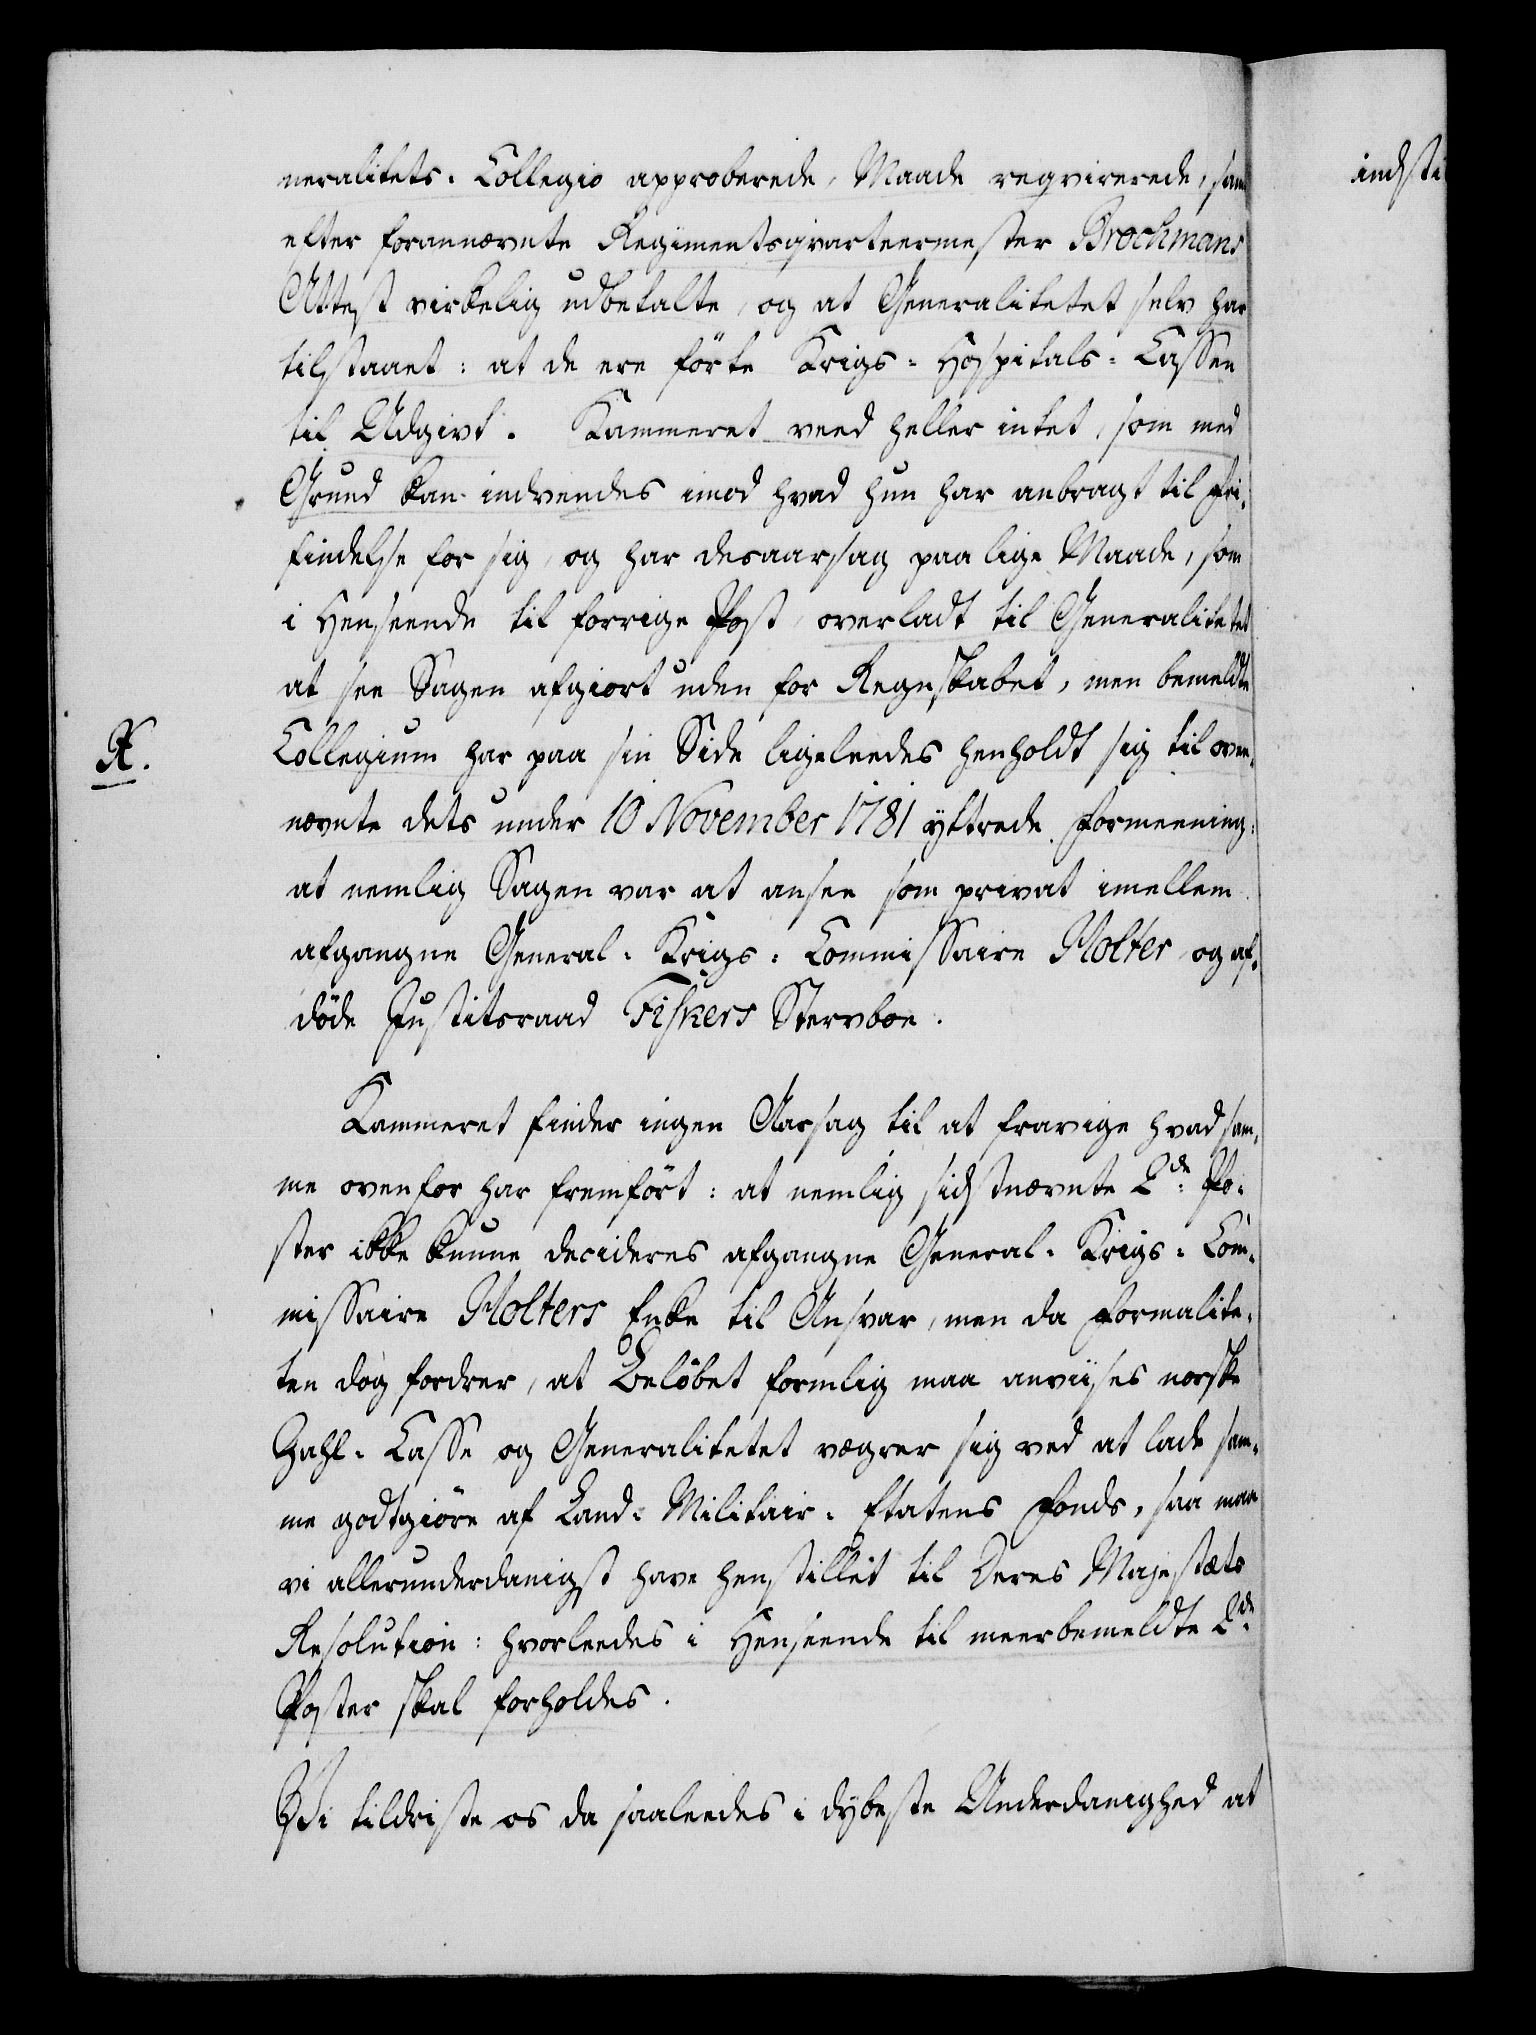 neralitets-Collegio approberede Maade reqvirerede, samt
efter forannævnte Regimentsqvarteermester Brochmans
Attest virkelig udbetalte, og at Generalitetet selv har
tilstaaet: at de ere förte Krigs-Hospitals-Cassen
til Udgivt. Kammeret veed heller intet, som med
Grund kan indvendes imod hvad hun har anbragt til Fri-
findelse for sig, og har desaarsag paa lige Maade, som
i Henseende til forrige Post, overladt til Generalitetet
at see Sagen afgiort uden for Regnskabet, men bemeldte
Collegium har paa sin Side ligeleedes henholdt sig til oven-
nævnte dets under 10 November 1781 yttrede Formeening:
at nemlig Sagen var at ansee som privat imellem
afgangne General-Krigs-Commissaire Holter, og af-
döde Justitsraad Fiskers Stervboe.
Kammeret finder ingen Aarsag til at fravige hvad sam-
me ovenfor har fremført: at nemlig sidstnævnte 2de Po-
ster ikke kunne decideres afgangne General-Krigs-Com-
missaire Holters Enke til Ansvar, men da Formalite-
ten dog fordrer, at Belöbet formlig maa anviises norske
Zahl-Casse og Generalitetet vægrer sig ved at lade sam-
me godtgiöre af Land-Militair-Etatens Fonds, saa maa
vi allerunderdanigst have henstillet til Deres Majestæts
Resolution: hvorleedes i Henseende til meerbemeldte 2de
Poster skal forholdes.
Vi tildriste os da saaleedes i dybeste Underdanighed at
indsti